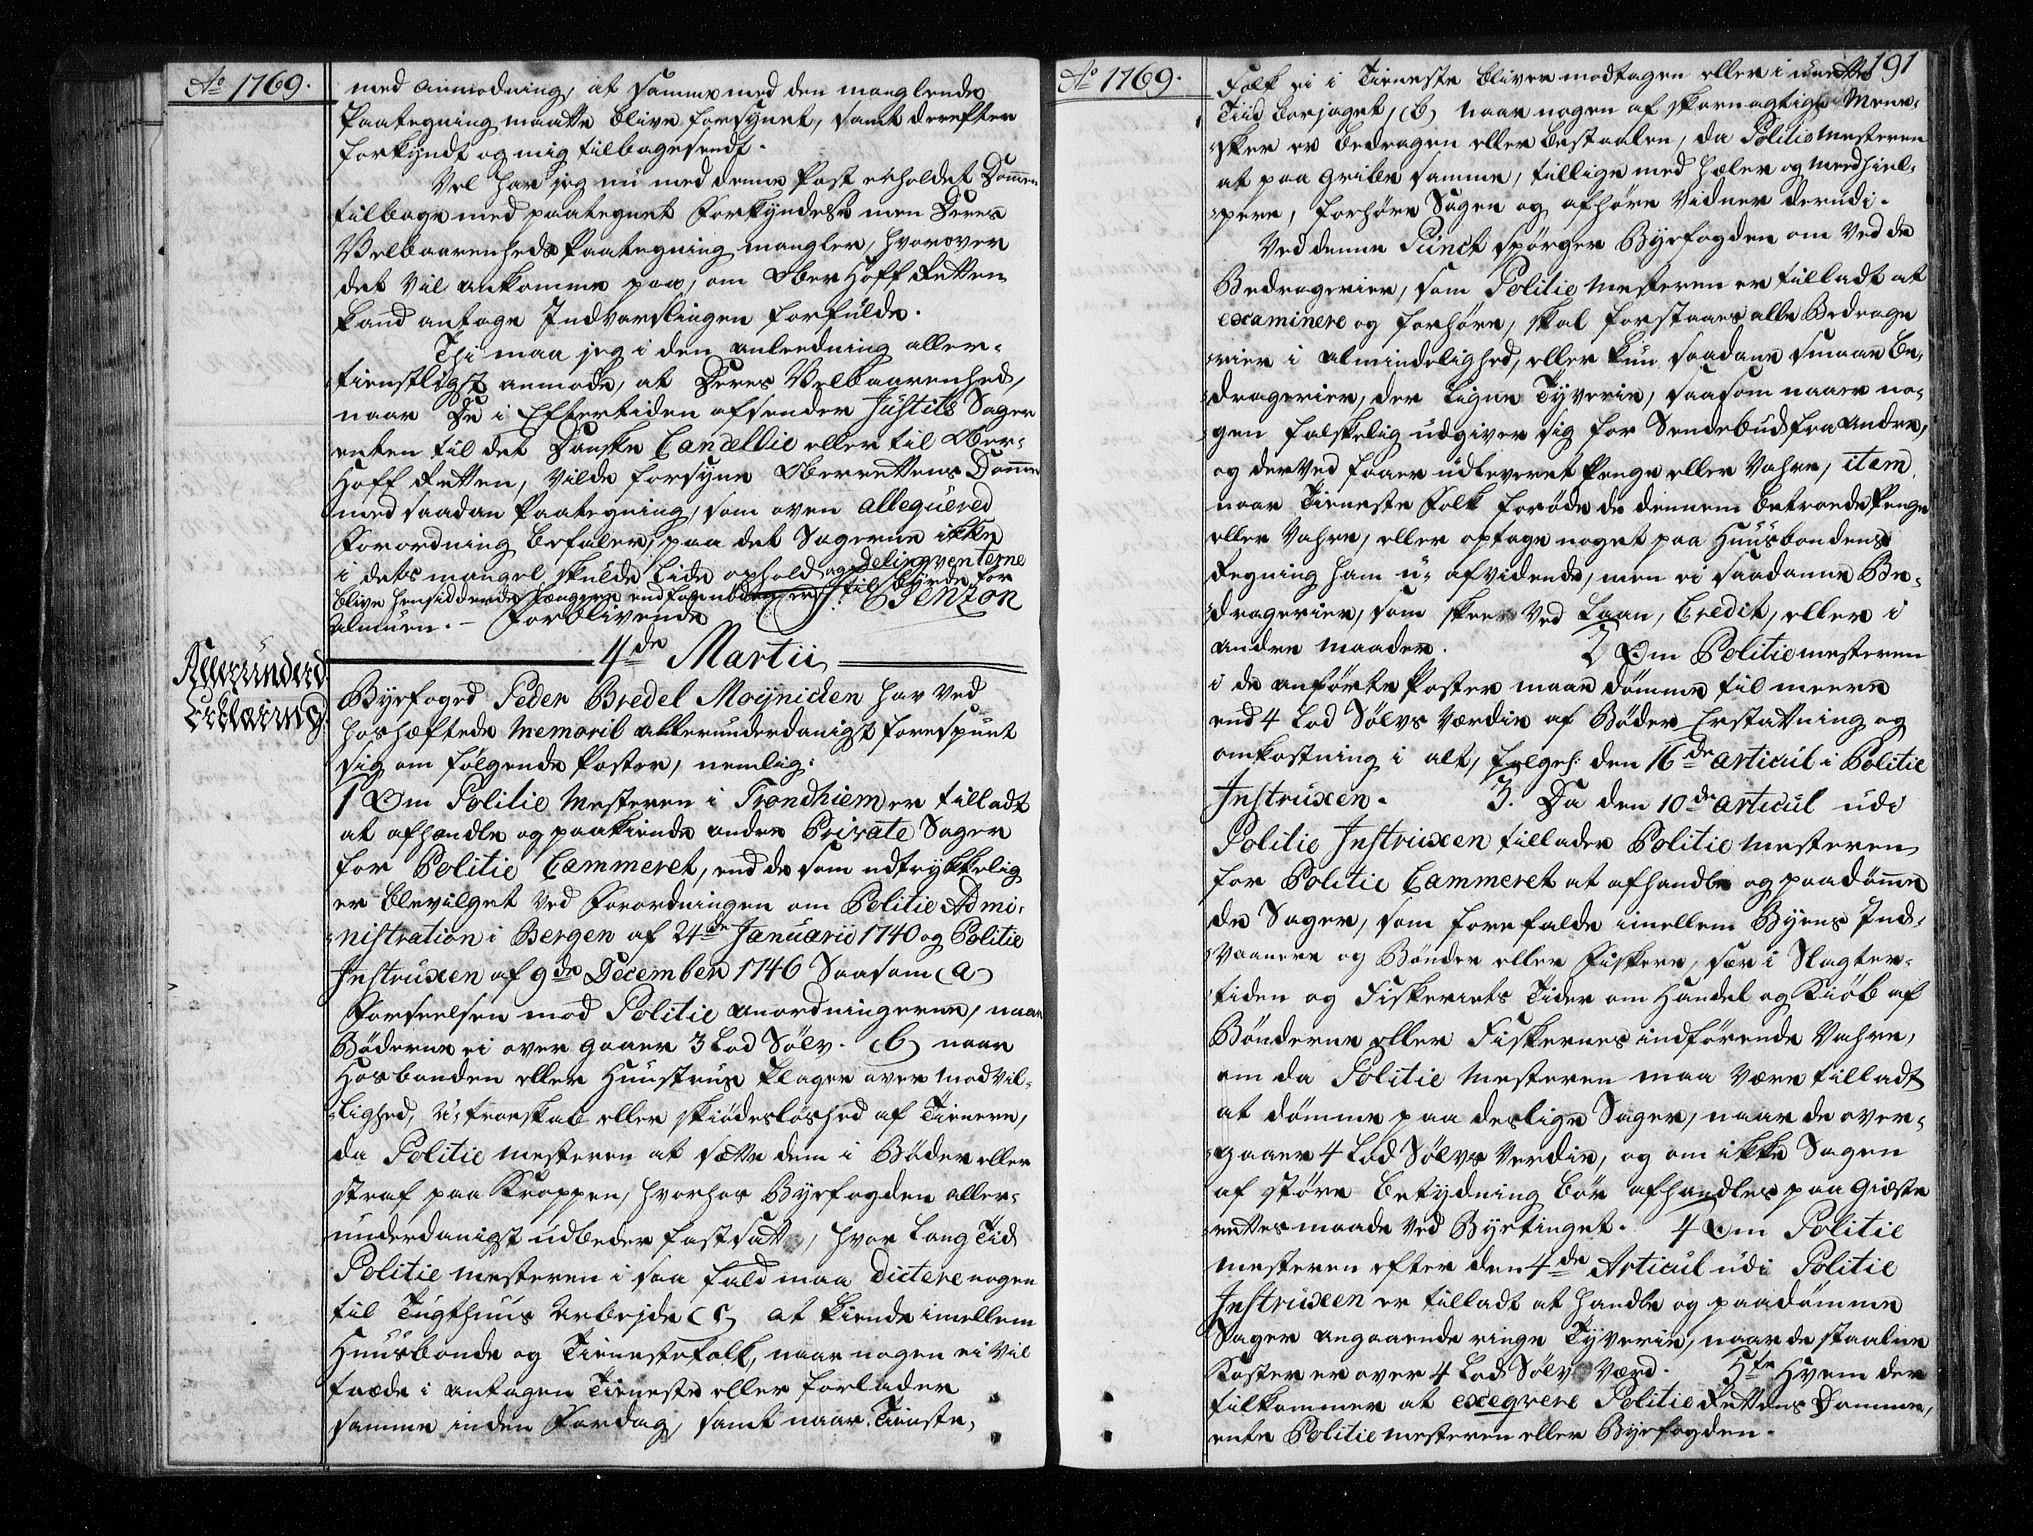 Ao 1769.
med anmodning, at samme med den manglende
Paategning maatte blive forsynet, samt derefter
forkyndt og mig tilbagesendt.
Vel har jeg nu med denne Post erholdet Dommen
tilbage med paategnet Forkyndelse men Deres
Velbaarenheds Paategning mangler, hvorover
det vil ankomme paa, om Ober Hoff Retten
kand antage Indvarslingen forfulde.
Thi maa jeg i den anleedning aller-
tienstligst anmode, at Deres Velbaarenhed,
naar De i Eftertiden afsender Justits Sager
enten til det Danske Cancellie eller til Ober-
Hoff Retten, vilde forsyne Oberrettens Domme
med saadan Paategning, som oven allegüered
Forordning befaler, paa det Sagerne ikke
i dets mangel skulde lide ophold og Delinqventerne
blive hensiddende længere end fornøden er til byrde for
Almuen. - Forblivende JC Benzon
4de Martii
Alleründerd.
Erklæring.
Byefoged Peder Bredel Moÿnichen har ved
hoshæftede Memoril allerunderdanigst forespurt
sig om følgende Poster, nemlig:
1 Om Politie Mesteren i Trondhiem er tilladt
at afhandle og paakiende andre Private Sager
for Politie Cammeret, end de som udtrykkelig
er bevilget ved Forordningen om Politie Admi-
nistration i Bergen af 24de Januarii 1740 og Politie
Instruxen af 9de December 1746 Saasom (a)
Forseelsen mod Politie anordningerne, naar
Bøderne ei over gaaer 3 Lod Sølv. (b) naar
Hosbonden eller Huustrue klager over modvil-
lighed, u-troeskab eller skiødesløshed af Tienere,
da Politie mesteren at sætte dem i Bøder eller
straf paa Kroppen, hvorhos Byefogden aller-
underdanigst udbeder fastsatt, hvor lang Tid
Politie mesteren i saa fald maa dictere nogen
til Tugthuus arbejde (c) at kiende imellem
Huusbonde og Tienestefolk, naar nogen ei vil
træde i antagen Tieneste eller forlader
samme inden Fardag, samt naar Tieneste-
Ao 1769.
191
Folk ei i Tieneste bliver modtagen eller i urette
Tiid bortjaget, (d) naar nogen af skarnagtige Menne-
sker er bedragen eller bestaalen, da Politie Mesteren
at paa gribe samme, tillige med hæler og meedhiel-
pere, forhøre Sagen og afhøre Vidner derudi.
Ved denne Punct spørger Byefogden om ved de
Bedragerier, som Politie Mesteren er tilladt at
examinere og forhøre, skal forstaaes alle Bedrage
rier i Almindelighed, eller kun saadane smaae be-
dragerier, der ligne Tyverie, saasom naar no-
gen falskelig udgiver sig for Sendebud fra andre,
og derved faaer udleveret Penge eller Vahre, item
naar Tieneste Folk forøde de dennem betroede Penge
eller Vahre, eller optage noget paa Huusbondens
Regning ham u-afvidende, men ei saadanne Be-
dragerier, som skeer ved Laan, Credit, eller i
andre maader. 2 Om Politiemesteren
i de anførte Poster maae dømme til meere
end 4 Lod Sølvs værdie af Bøder Erstattning og
omkostning i alt, følgel: den 16de articul i Politie
Instruxen. 3. Da den 10de articul udi
Politie Instruxen tillader Politie Mesteren
for Politie Cammeret at afhandle og paadømme
de Sager, som forefalde imellem Byens Ind-
vaanere og Bønder eller Fiskere, sær i Slagter-
tiden og Fiskeriets Tider om Handel og Kiøb af
Bønderne eller Fiskernes indførende Vahre,
om da Politie Mesteren maa være tilladt
at dømme paa deslige Sager, naar de over-
gaaer 4 Lod Sølvs Verdie, og om ikke Sagen
af støre betydning bør afhandles paa Giæste
rettes maade ved Byetinget. 4 Om Politie
mesteren efter den 4de Articul udi Politie
Instruxen er tilladt at handle og paadømme
Sager angaaende ringe Tyverie, naar de staalne
Koster er over 4 Lod Sølv Værd. 5te Hvem der
tilkommer at exeqvere Politie Rettens Domme,
ente Politie mesteren eller Byefogden.